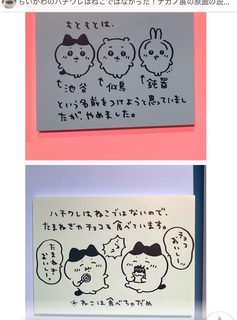 ちいかわのハチワレはねこではなかった！ナガノ展の原画の説...
もともとは、
池谷
似鳥
鈍器
という名前をつけようと思っていまし
たが、やめました。
ハチワレはねこではないので、
たまねぎやチョコも食べています。
たまねぎ
おいしー
チョコ
おいしー
ねこは食べちゃだめ